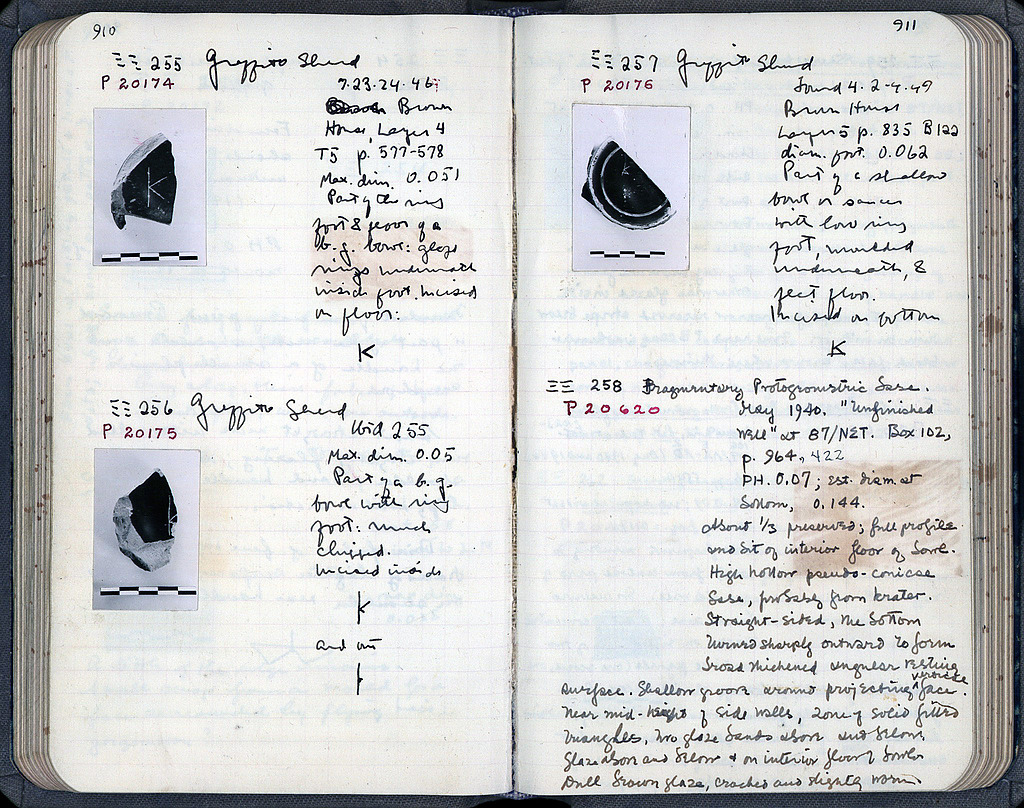 910
ΞΞ 255 Graffito Sherd
P 20174
7.23.24.46:
Brown
House, Layer 4
T5 p. 577-578
Max. dim. 0.051
Part of the ring
foot & floor of a
b.g. bowl: glaze
rings underneath
inside foot. Incised
on floor:
K
ΞΞ 256 Graffito Sherd
P 20175
Ibid 255
Max. dim. 0.05
Part of a b.g.
bowl with ring
foot: much
chipped.
Incised inside
K
and on
911
ΞΞ 257 Graffito Sherd
P 20176
Found 4.2-4.49
Brown House
Layer 5 p. 835 B122
diam. foot. 0.062
Part of a shallow
bowl or saucer
with low ring
foot, moulded
underneath, &
flat floor.
Incised on bottom
K
ΞΞ 258 Fragmentary Protogeometric Base.
P 20620
May 1940. "Unfinished
Well" at 87/ΝΣΤ. Box 102,
p. 964, 422
PH. 0.07; est. diam. at
bottom, 0.144.
About 1/3 preserved; full profile
and bit of interior floor of bowl.
High hollow pseudo-conical
base, probably from krater.
Straight-sided, the bottom
turned sharply outward to form
broad thickened angular resting
surface. Shallow groove around projecting vertical face.
Near mid-height of side walls, zone of solid filled
triangles, two glaze bands above and below.
Glaze above and below & on interior floor of bowl.
Dull brown glaze, cracked and slightly worn